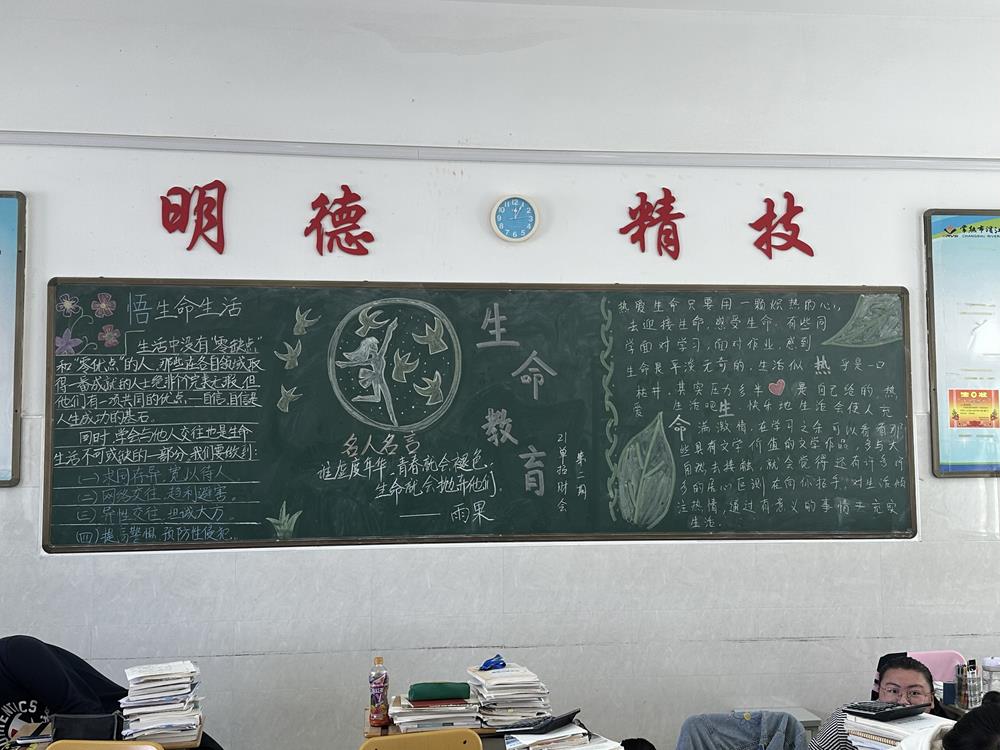 明德 精技
12
1
2
3
4
5
6
7
8
9
10
11
常熟市滨江
CHANGSHU RIVER
悟生命生活
生活中没有"零缺点"
和"零优点"的人,那些在各自领域取
得一番成就的人士绝非个个完美无瑕,但
他们有一项共同的优点——自信,自信是
人生成功的基石。
同时,学会与他人交往也是生命
生活不可或缺的一部分,我们要做到:
(一)求同存异,宽以待人
(二)网络交往,趋利避害
(三)异性交往,坦诚大方
(四)提高警惕,预防性侵犯.
名人名言
谁虚度年华,青春就会褪色,
生命就会抛弃他们.
——雨果
生命教育
21单招财会
第二期
热爱生命只要用一颗炽热的心,
去迎接生命,感受生命,有些同
学面对学习,面对作业,感到
生命是平淡无奇的,生活似 热 乎是一口
枯井,其实压力多半 是自己给的,热
爱 生活吧 生 快乐地生活会使人充
命 满激情,在学习之余可以看看那
些具有文学价值的文学作品,多与大
自然去接触,就会觉得还有许多许
多的 在向你招手,对生活倾
注热情,通过有意义的事情去充实
生活.